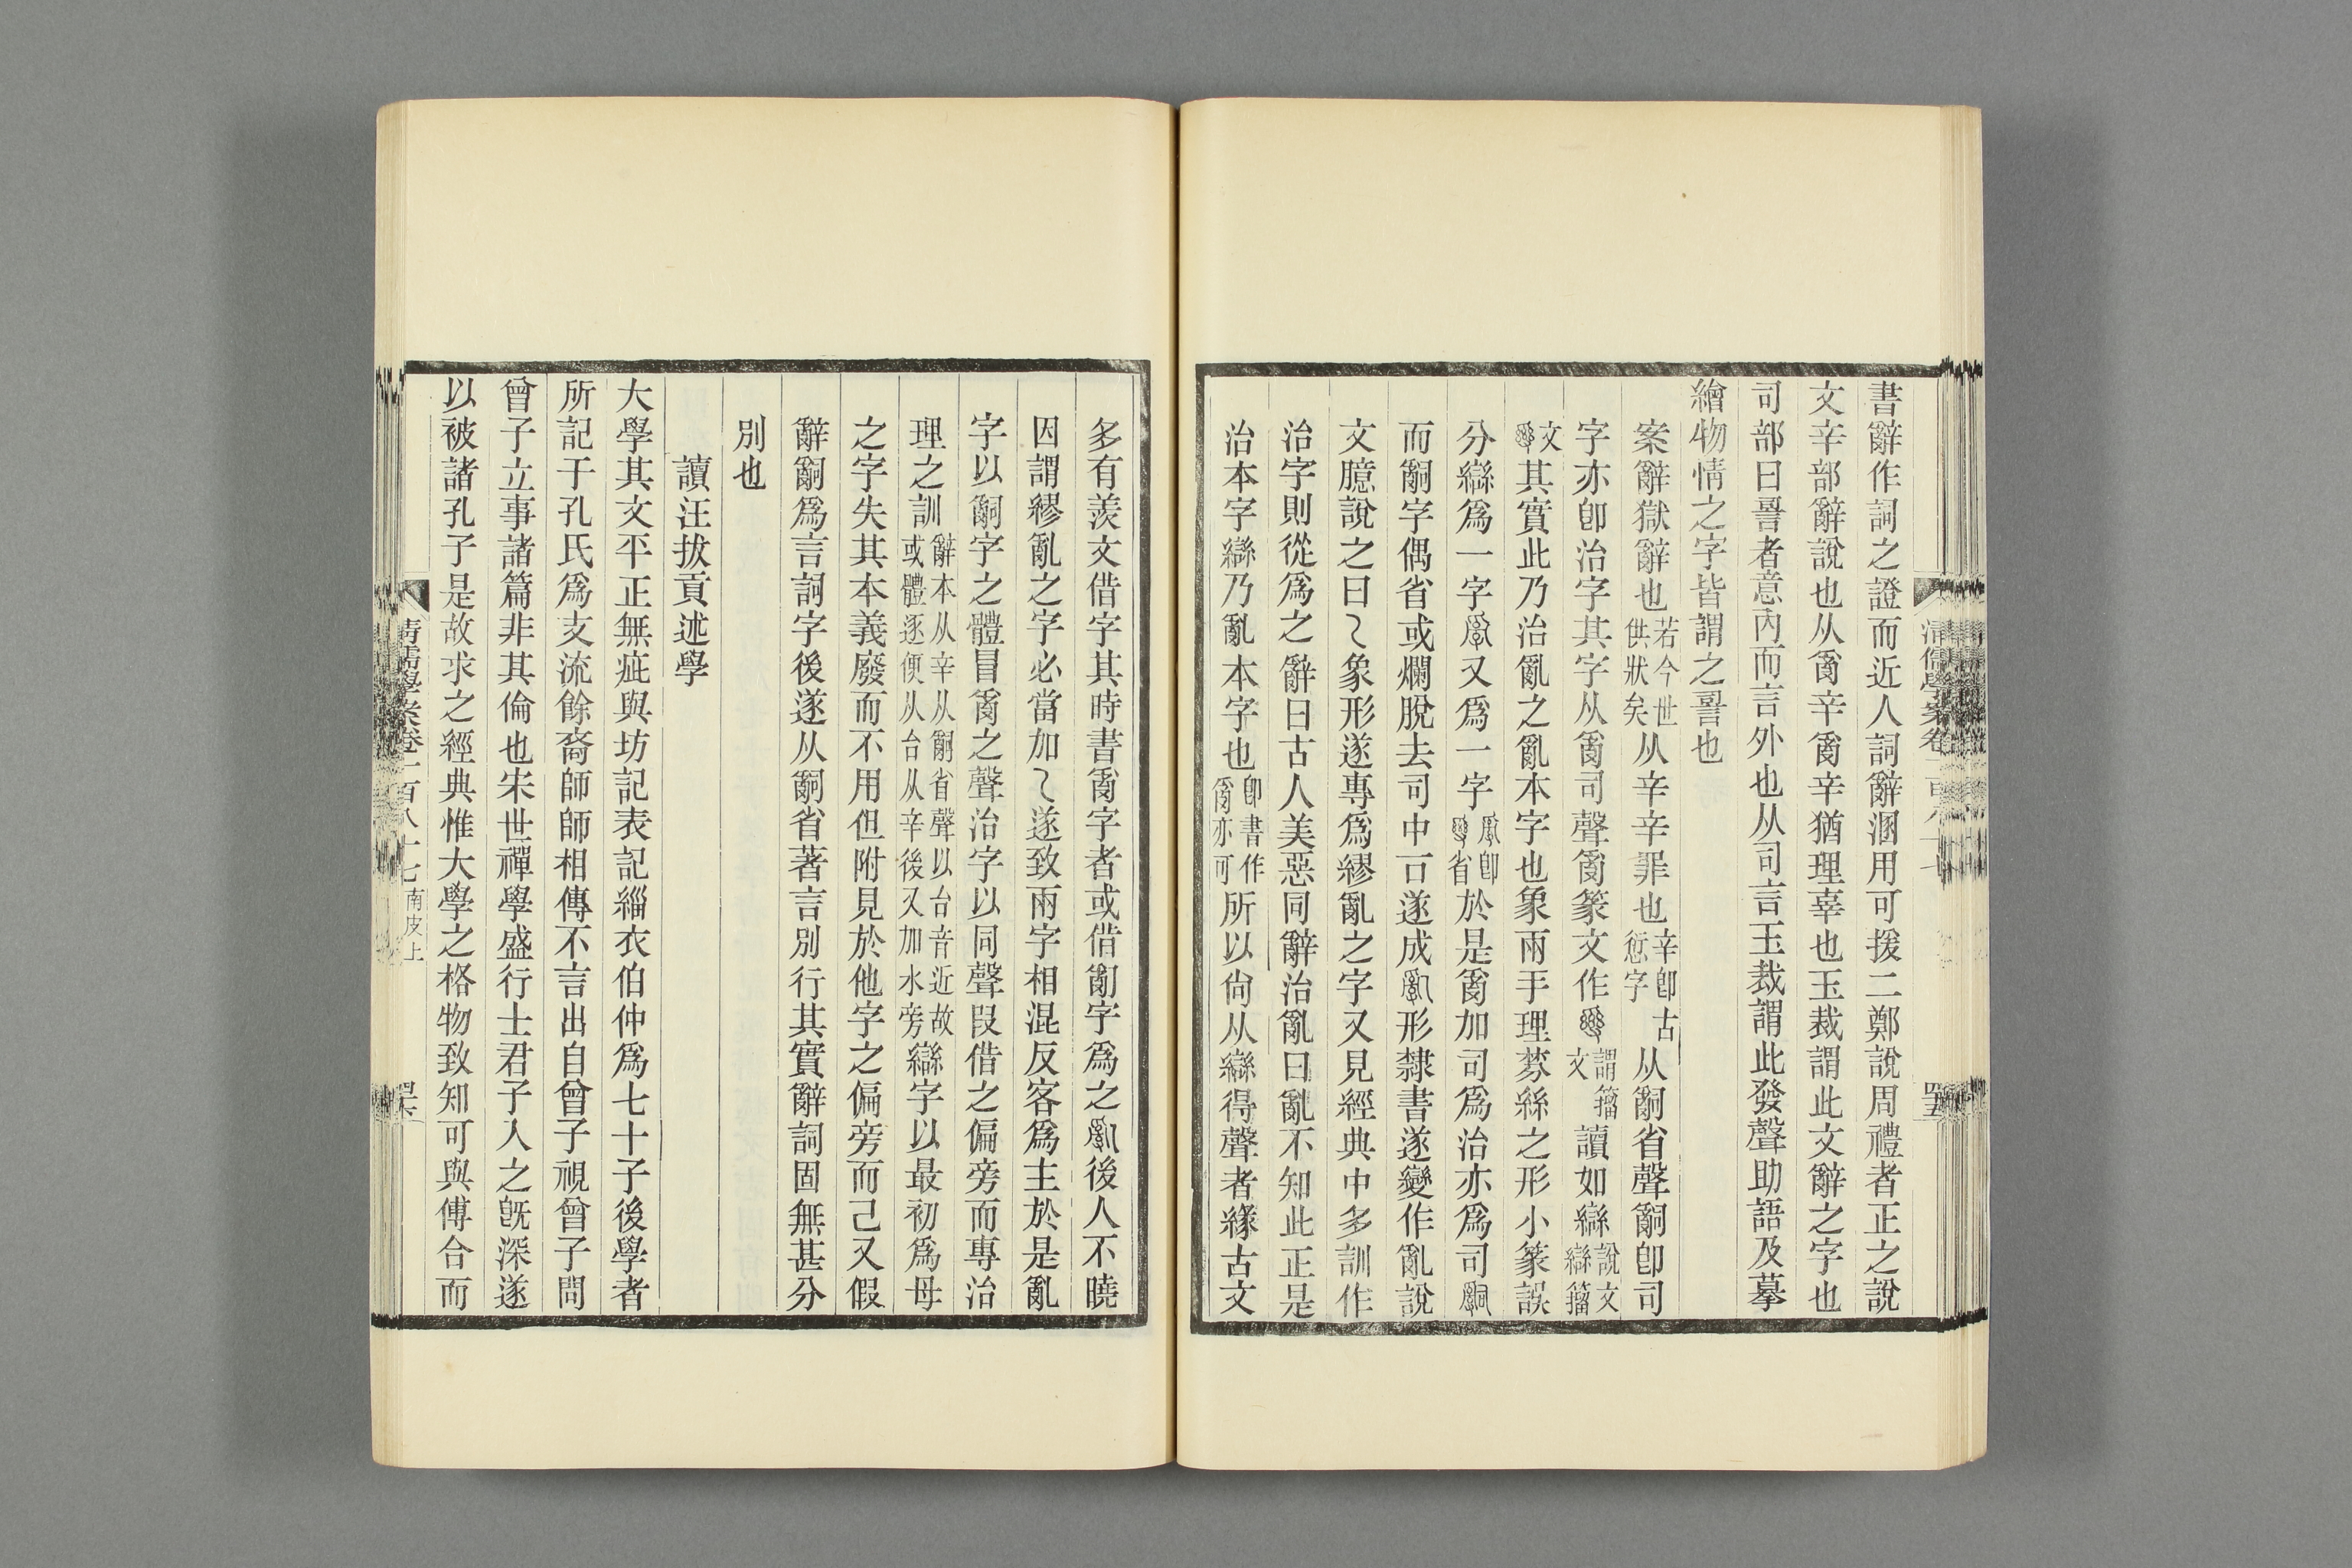 書辭作詞之證而近人詞辭溷用可援二鄭說周禮者正之說
文辛部辭說也从𤔔辛𤔔辛猶理辜也玉裁謂此文辭之字也
司部曰䛐者意內而言外也从司言玉裁謂此發聲助語及摹
繪物情之字皆謂之䛐也
案辭獄辭也若今世供狀矣从辛辛罪也辛卽古愆字从嗣省聲嗣卽司
字亦卽治字其字从𤔔司聲𤔔篆文作謂籀文讀如䜌說文䜌籀
文其實此乃治亂之亂本字也象兩手理棼絲之形小篆誤
分䜌爲一字𤔔又爲一字𤔔卽省於是𤔔加司爲治亦爲司嗣
而嗣字偶省或爛脫去司中𠮛遂成形隸書遂變作亂說
文臆說之曰乁象形遂專爲繆亂之字又見經典中多訓作
治字則從爲之辭曰古人美惡同辭治亂曰亂不知此正是
治本字䜌乃亂本字也卽書作𤔔亦可所以尙从䜌得聲者緣古文
多有羨文借字其時書𤔔字者或借字爲之後人不曉
因謂繆亂之字必當加乁遂致兩字相混反客爲主於是亂
字以嗣字之體冒𤔔之聲治字以同聲叚借之偏旁而專治
理之訓辭本从辛从嗣省聲以台音近故或體逐便从台从辛後又加水旁䜌字以最初爲母
之字失其本義廢而不用但附見於他字之偏旁而已又假
辭嗣爲言詞字後遂从嗣省著言別行其實辭詞固無甚分
別也
讀汪拔貢述學
大學其文平正無疵與坊記表記緇衣伯仲爲七十子後學者
所記于孔氏爲支流餘裔師師相傳不言出自曾子視曾子問
曾子立事諸篇非其倫也宋世禪學盛行士君子入之旣深遂
以被諸孔子是故求之經典惟大學之格物致知可與傅合而
清儒學案卷一百八十七南皮上